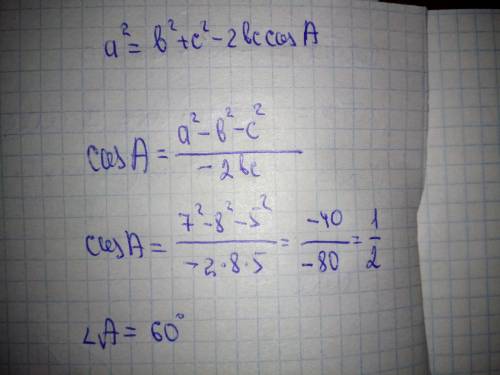 a² = в² + c² - 2вc cos A
cos A = (a² - в² - c²) / (-2вc)
cos A = (7² - 8² - 5²) / (-2 · 8 · 5) = -40 / -80 = 1/2
∠A = 60°